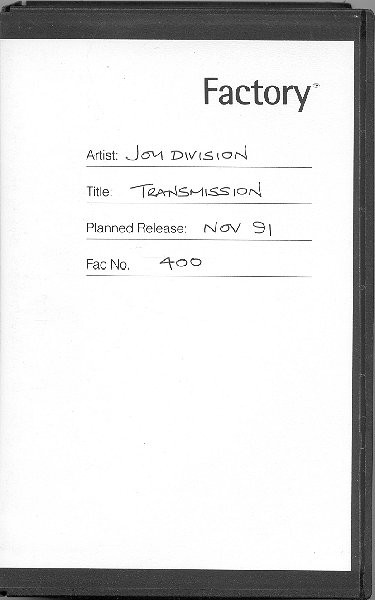 Factory
Artist: JOY DIVISION
Title: TRANSMISSION
Planned Release: NOV 91
Fac No. 400